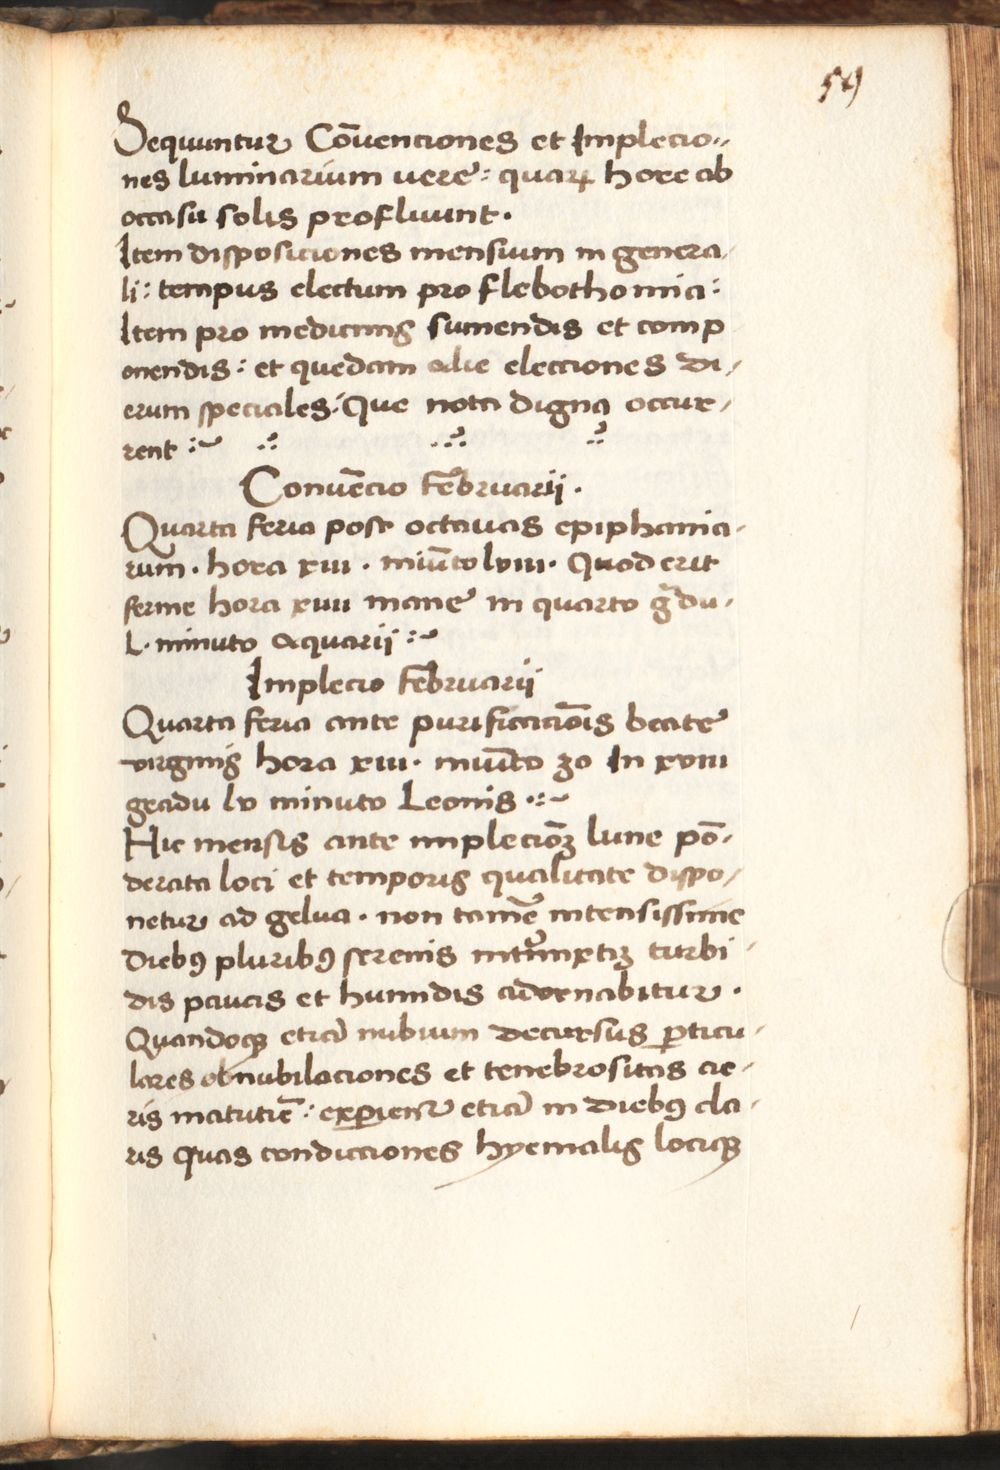 59
Sequuntur Cōuenciones et Implecio-
nes luminarium vere: quaꝝ hore ab
occasu solis profluunt.
Item disposiciones mensium in genera-
li: tempus electum pro flebothomia:
Item pro medicinis sumendis et comp
onendis: et quedam alie elecciones di-
erum speciales: Que nota digna occur-
rent
Conuēcio Febͬuarii.
Quarta feria post octauas epiphania-
rum. hora xiii. miūto lviii. Quod erit
ferme hora xiiii mane in quarto gͣdu.
L. minuto Aquarii
Implecio Febͬuarii
Quarta feria ante purificaciōis beate
virginis hora xiii. miūto 30 In xviii
gradu lv minuto Leonis
Hic mensis ante impleciōꝫ lune pō-
derata loci et temporis qualitate dispo-
netur ad gelua. non tamē intensissime
Diebꝰ pluribꝰ serenis turbi-
dis paucis et humidis adornabitur.
Quandoqꝫ eciā nubium decursus ꝑticu-
lares obnubilaciones et tenebrositas ae-
ris matutiē: eciā in diebꝰ cla-
ris Quas condicciones hyemalis lociqꝫ